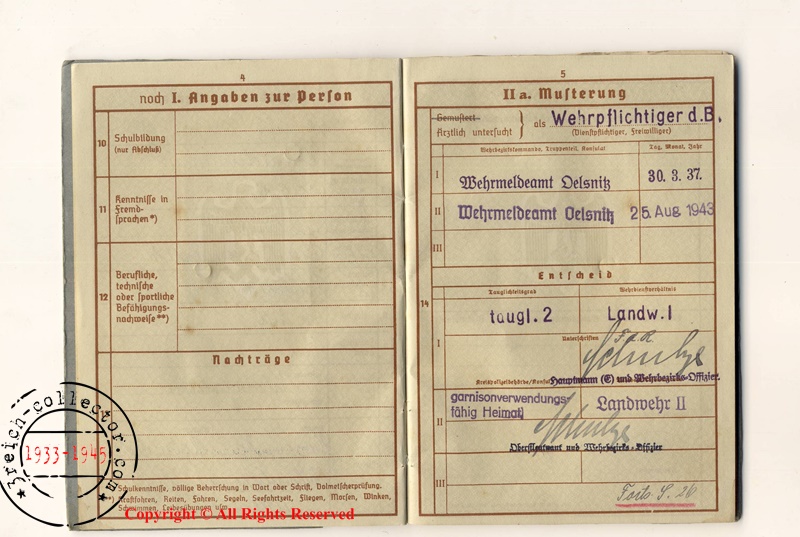 4
noch I. Angaben zur Person
10 Schulbildung
(nur Abschluß)
11 Kenntnisse in
Fremd-
sprachen*)
12 Berufliche,
technische
oder sportliche
Befähigungs-
nachweise**)
Nachträge
Schulkenntnisse, völlige Beherrschung in Wort oder Schrift, Dolmetscherprüfung.
Kraftfahren, Reiten, Fahren, Segeln, Seefahrtzeit, Fliegen, Morsen, Winken,
Schwimmen, Leibesübungen usw.
3reich-collector.com
1933-1945
Copyright © All Rights Reserved
5
II a. Musterung
Gemustert
Ärztlich untersucht } als Wehrpflichtiger d.B.
(Dienstpflichtiger, Freiwilliger)
Wehrbezirkskommando, Truppenteil, Konsulat Tag, Monat, Jahr
I Wehrmeldeamt Oelsnitz 30. 3. 37.
II Wehrmeldeamt Oelsnitz 25. Aug 1943
III
Entscheid
14
Tauglichkeitsgrad Wehrdienstverhältnis
I taugl. 2 Landw. I
Unterschriften
Schulze
Kreispolizeibehörde/Konsulat
Hauptmann (E) und Wehrbezirks-Offizier.
II garnisonverwendungs-
fähig Heimat Landwehr II
Schulze
Oberstleutnant und Wehrbezirks-Offizier
III
Forts. S. 26